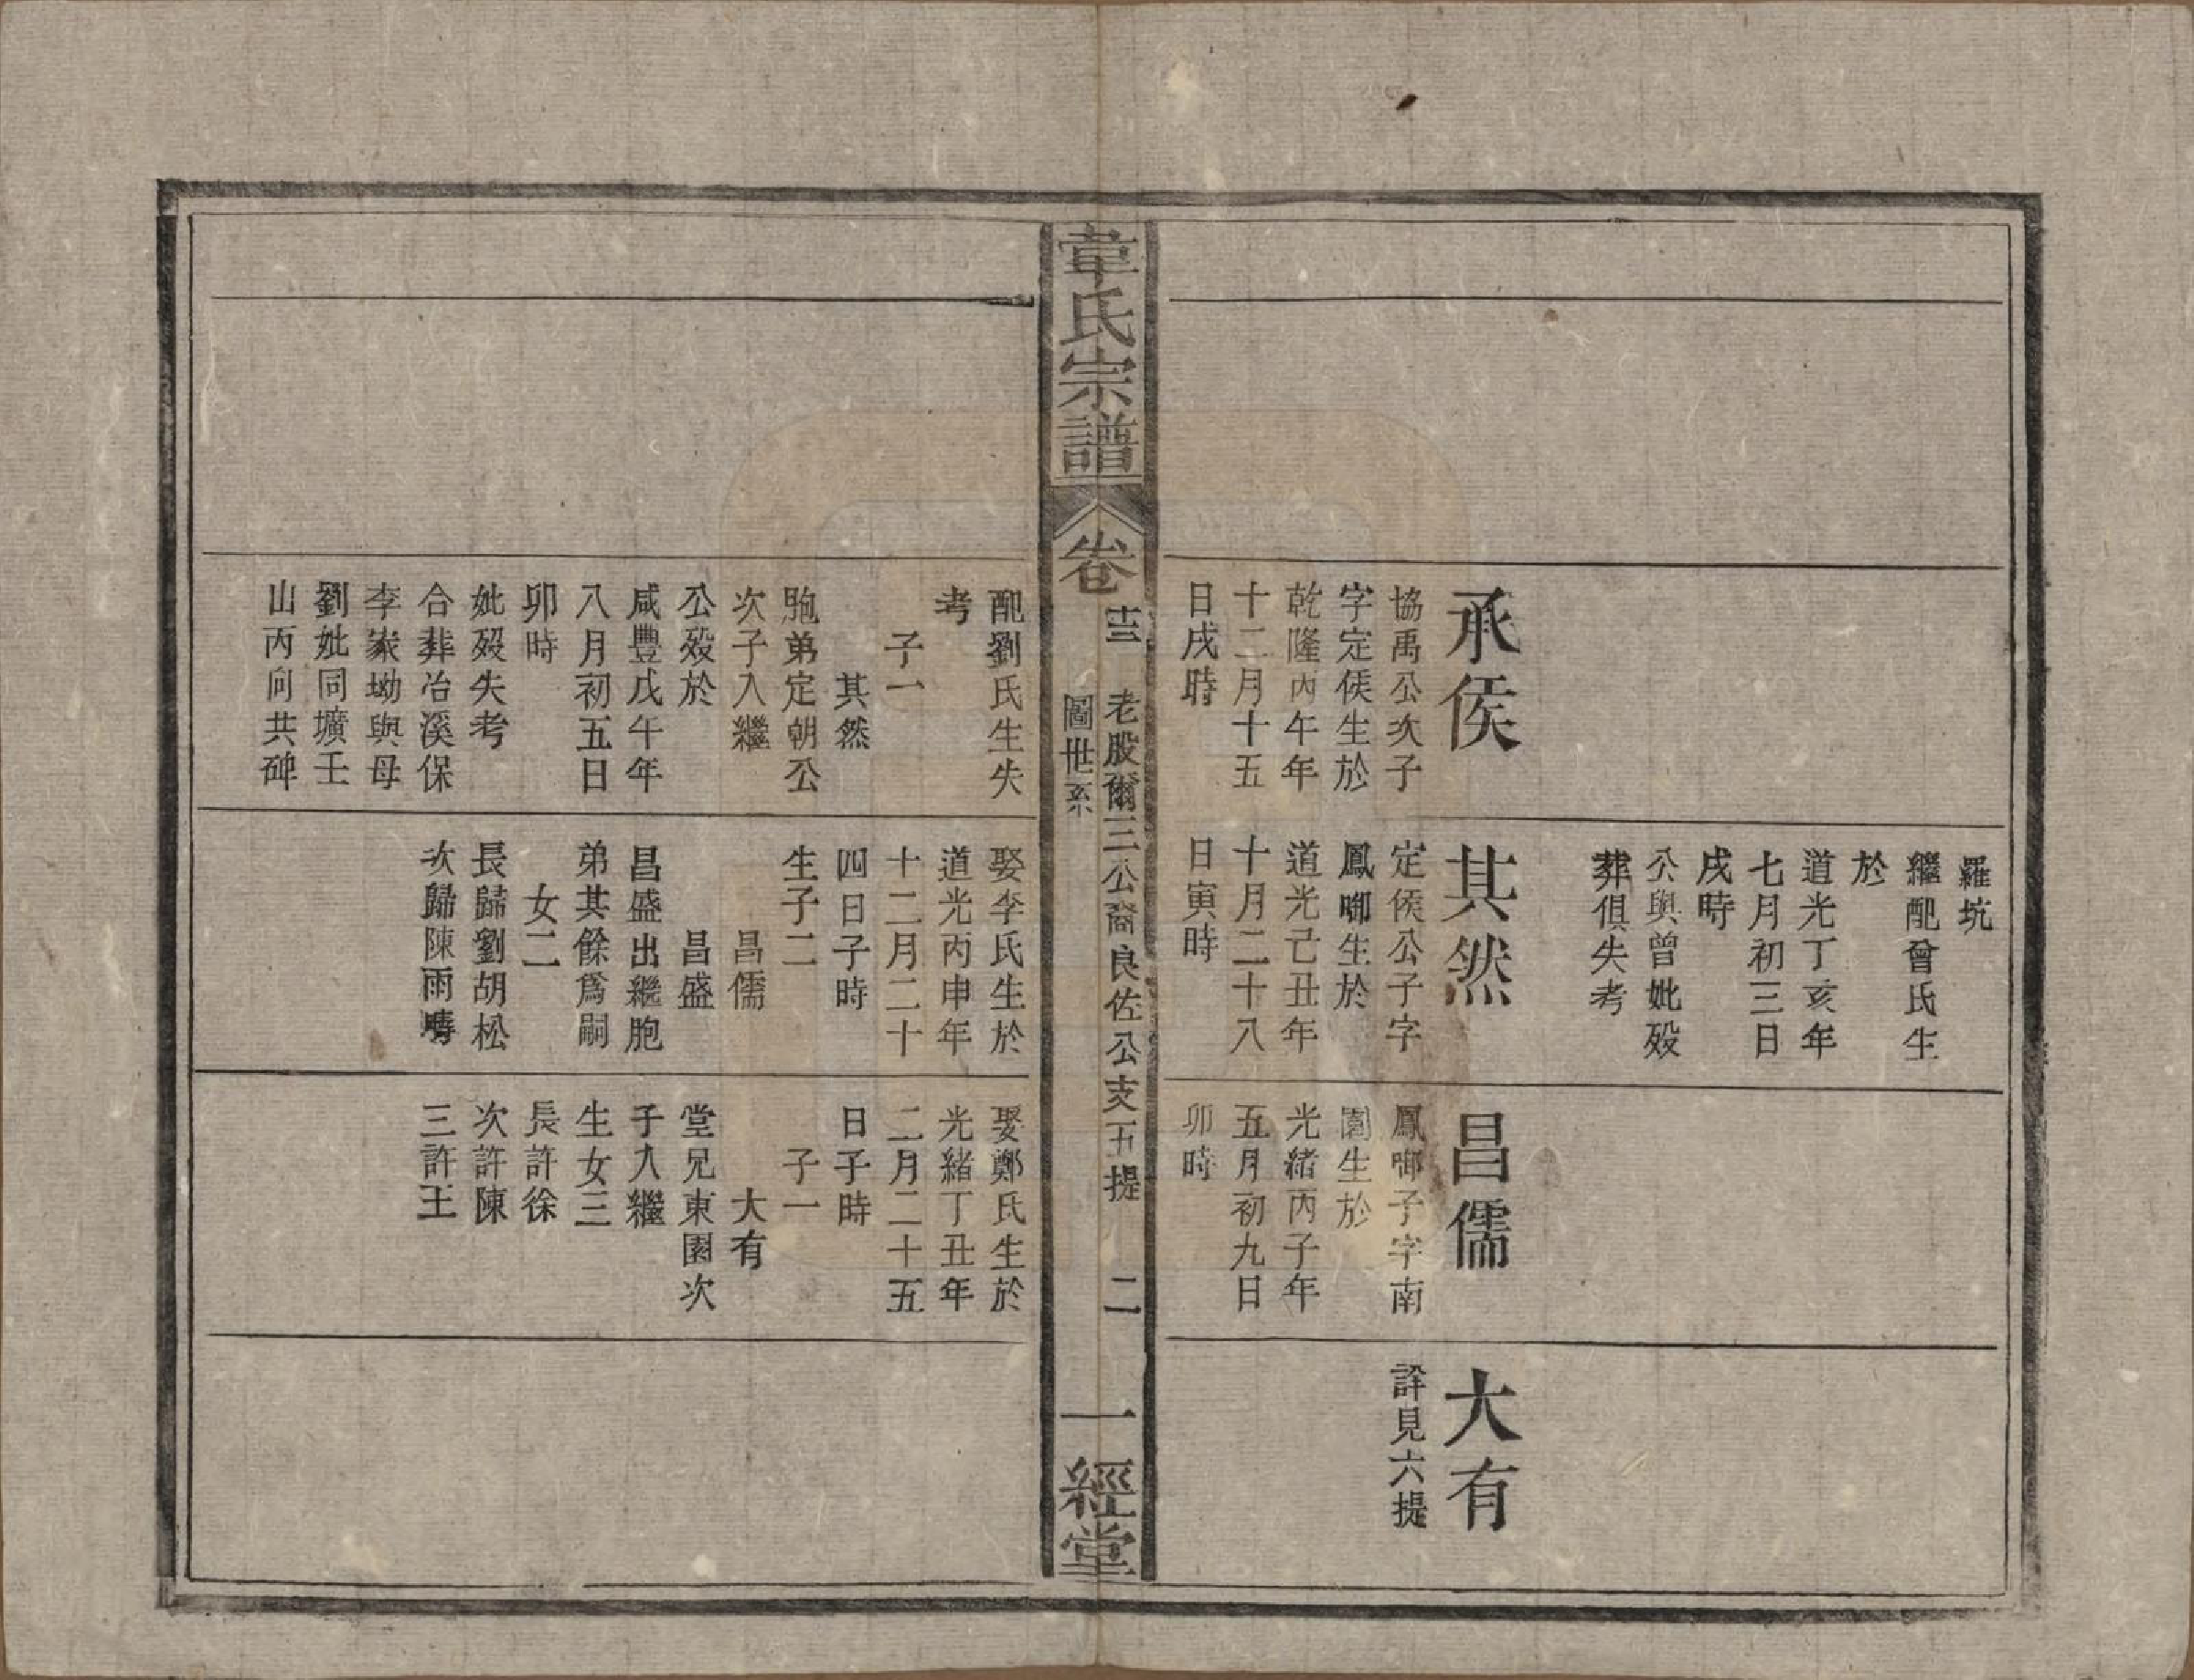 承侯
協禹公次子
字定侯生於
乾隆丙午年
十二月十五
日戌時
羅坑
繼配曾氏生
於
道光丁亥年
七月初三日
戌時
公與曾妣歿
葬俱失考
其然
定侯公子字
鳳啣生於
道光己丑年
十月二十八
日寅時
昌儒
鳳啣子字南
園生於
光緒丙子年
五月初九日
卯時
大有
詳見六提
韋氏宗譜
卷
十三
老股爾三公裔良佐公支五提
圖世系
二
一經堂
配劉氏生失
考
子一
其然
胞弟定朝公
次子入繼
公歿於
咸豐戊午年
八月初五日
卯時
妣歿失考
合葬冶溪保
李家坳與母
劉妣同壙壬
山丙向共碑
娶李氏生於
道光丙申年
十二月二十
四日子時
生子二
昌儒
昌盛
昌盛出繼胞
弟其餘爲嗣
女二
長歸劉胡松
次歸陳雨疇
娶鄭氏生於
光緒丁丑年
二月二十五
日子時
子一
大有
堂兄東園次
子入繼
生女三
長許徐
次許陳
三許王